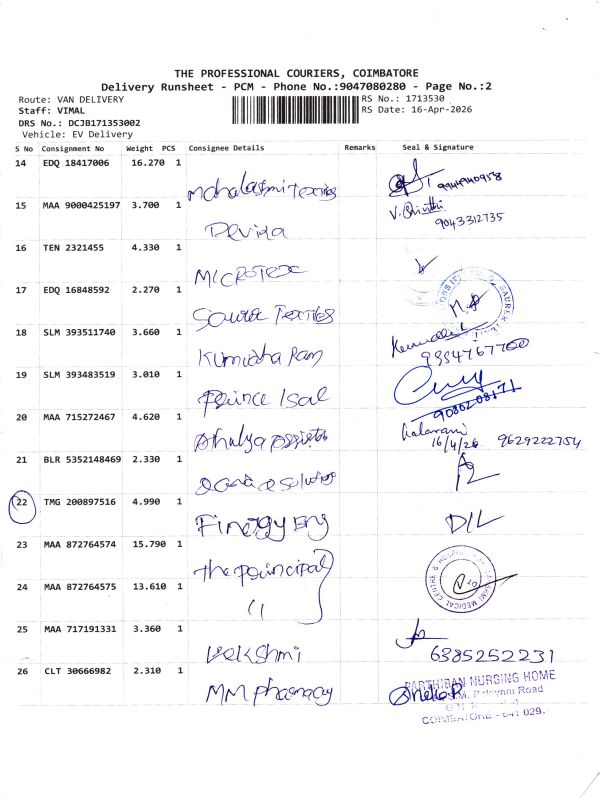 THE PROFESSIONAL COURIERS, COIMBATORE
Delivery Runsheet - PCM - Phone No.:9047080280 - Page No.:2
Route: VAN DELIVERY
RS No.: 1713530
Staff: VIMAL
RS Date: 16-Apr-2026
DRS No.: DCJB171353002
Vehicle: EV Delivery
S No Consignment No Weight PCS Consignee Details Remarks Seal & Signature
14 EDQ 18417006 16.270 1
Mahalashmi Textiles
15 MAA 9000425197 3.700 1
9043312735
Devika
16 TEN 2321455 4.330 1
MICROTEX
17 EDQ 16848592 2.270 1
SAURER
Textiles
18 SLM 393511740 3.660 1
Ram
19 SLM 393483519 3.010 1
Prince
20 MAA 715272467 4.620 1
16/4/26 9629222754
21 BLR 5352148469 2.330 1
22 TMG 200897516 4.990 1
23 MAA 872764574 15.790 1
The principal
MEDICAL CENTRE & HOSPITAL
24 MAA 872764575 13.610 1
11
25 MAA 717191331 3.360 1
6385252231
26 CLT 30666982 2.310 1
MM pharmacy
PARTHIBAN NURSING HOME
Road
COIMBATORE - 641 029.